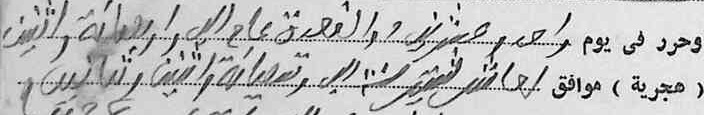 وحرر فى يوم واحد وعشرين ذو القعدة عام الف واربعمائة واثنين
( هجرية ) موافق الف وتسعمائة واثنين وثمانين